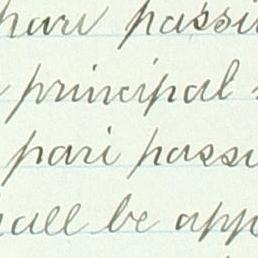 pari passu
principal
pari passu
shall be app